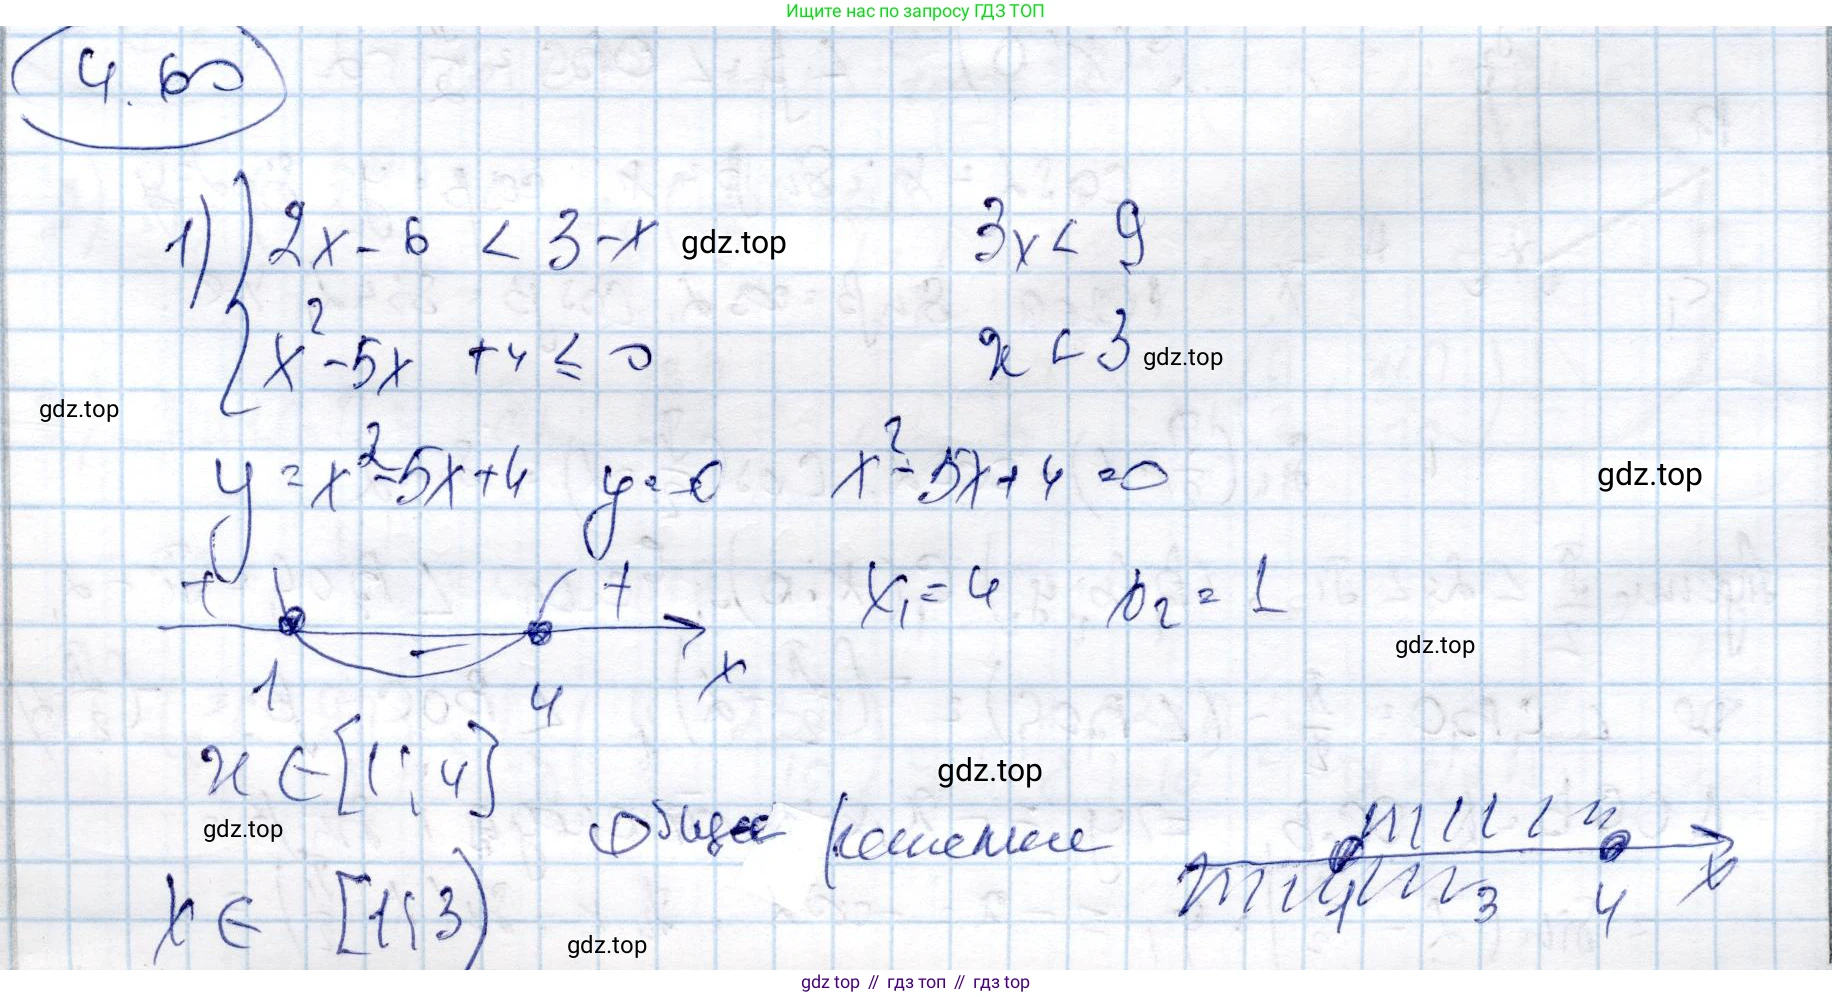 Ищите нас по запросу ГДЗ ТОП
4.60
1) { 2x - 6 < 3 - x gdz.top 3x < 9
x² - 5x + 4 ≤ 0 x < 3 gdz.top
gdz.top
y = x² - 5x + 4 y = 0 x² - 5x + 4 = 0 gdz.top
+ - + x₁ = 4 x₂ = 1
gdz.top
1 4 x
x ∈ [1; 4] gdz.top
gdz.top Общее решение
x ∈ [1; 3) 1 3 4 x
gdz.top
gdz top // гдз топ // gdz top